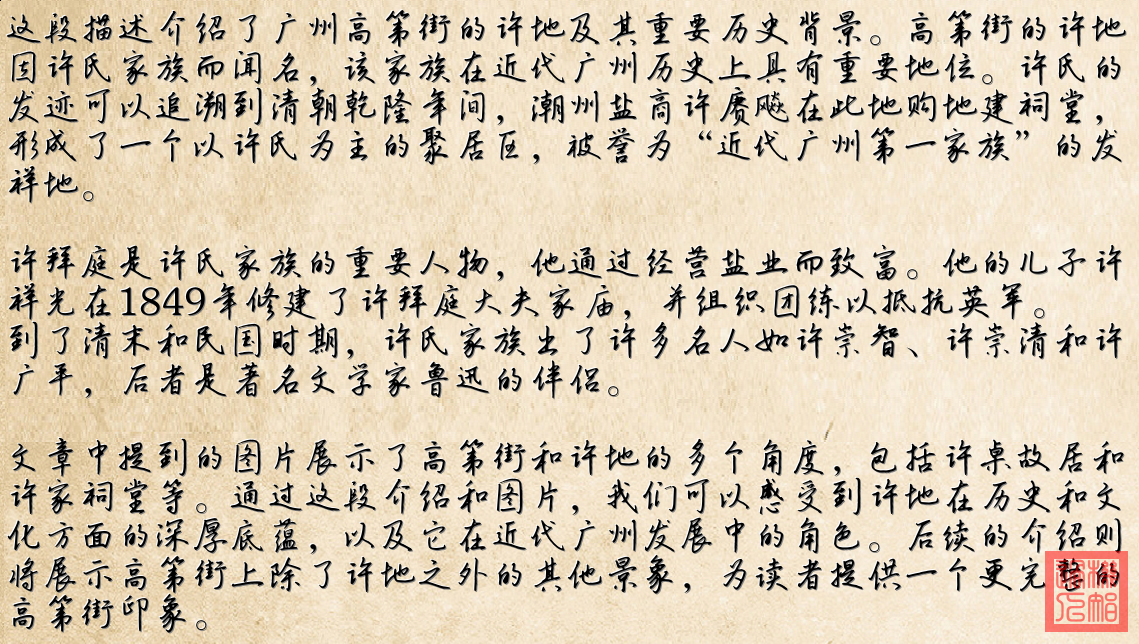 这段描述介绍了广州高第街的许地及其重要历史背景。高第街的许地
因许氏家族而闻名，该家族在近代广州历史上具有重要地位。许氏的
发迹可以追溯到清朝乾隆年间，潮州盐商许赓飏在此地购地建祠堂，
形成了一个以许氏为主的聚居区，被誉为“近代广州第一家族”的发
祥地。
许拜庭是许氏家族的重要人物，他通过经营盐业而致富。他的儿子许
祥光在1849年修建了许拜庭大夫家庙，并组织团练以抵抗英军。
到了清末和民国时期，许氏家族出了许多名人如许崇智、许崇清和许
广平，后者是著名文学家鲁迅的伴侣。
文章中提到的图片展示了高第街和许地的多个角度，包括许桌故居和
许家祠堂等。通过这段介绍和图片，我们可以感受到许地在历史和文
化方面的深厚底蕴，以及它在近代广州发展中的角色。后续的介绍则
将展示高第街上除了许地之外的其他景象，为读者提供一个更完整的
高第街印象。